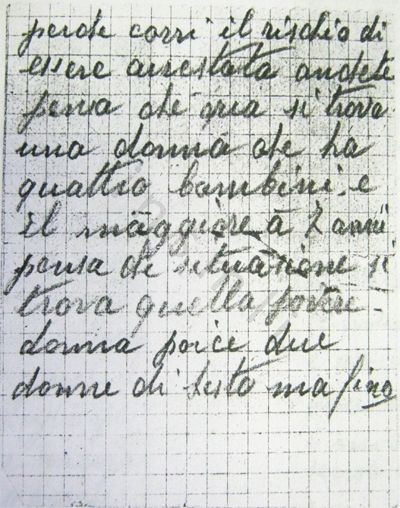 perde corri il rischio di
essere arrestata andete
pensa che qua si trova
una donna che ha
quattro bambini e
il maggiore à 7 anni
pensa che situazione si
trova quella povere
donna poice due
donne di Sesto ma fino